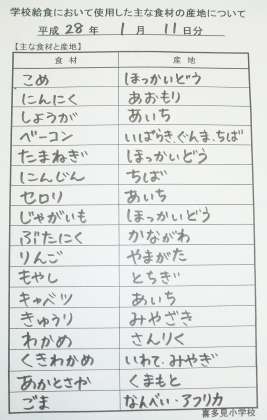 学校給食において使用した主な食材の産地について
平成 28 年 1 月 11 日分
【主な食材と産地】
食材 産地
こめ ほっかいどう
にんにく あおもり
しょうが あいち
ベーコン いばらき、ぐんま、ちば
たまねぎ ほっかいどう
にんじん ちば
セロリ あいち
じゃがいも ほっかいどう
ぶたにく かながわ
りんご やまがた
もやし とちぎ
キャベツ あいち
きゅうり みやざき
わかめ さんりく
くきわかめ いわて、みやぎ
あかとさか くまもと
ごま なんべい・アフリカ
喜多見小学校